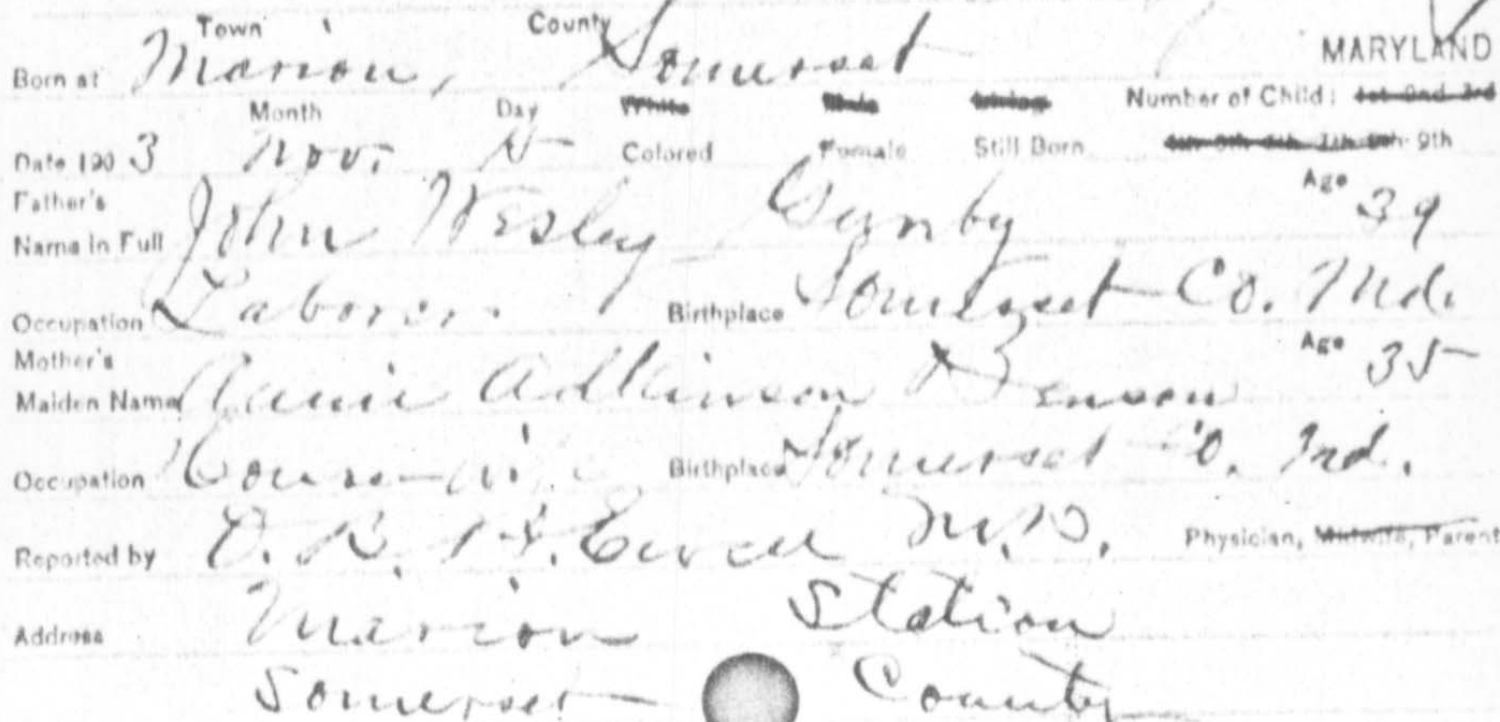 Town County
Born at Marion, Somerset MARYLAND
Month Day White Male Living Number of Child: 1st 2nd 3rd
Date 1903 Nov. 5 Colored Female Still Born 4th 5th 6th 7th 8th 9th
Father's Age 39
Name in Full John Wesley Gunby
Occupation Laborer. Birthplace Somerset Co. Md.
Mother's Age 35
Maiden Name Adkinson Benson
Occupation House-wife Birthplace Somerset Co. Md.
Reported by M.D. Physician, Midwife, Parent
Address Marion Station
Somerset County